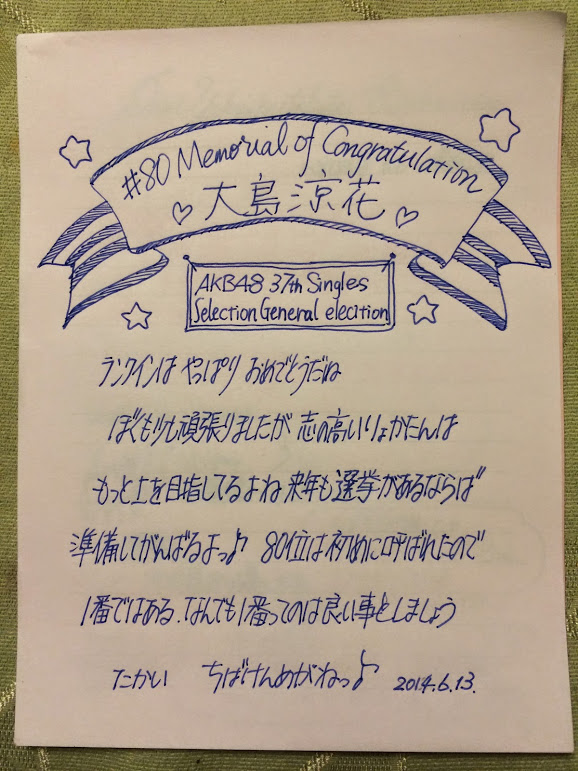 #80 Memorial of Congratulation
♡ 大島涼花 ♡
AKB48 37th Singles
Selection General elecition
ランクインは やっぱり おめでとうだね
ぼくも少し頑張りましたが 志の高いりょかたんは
もっと上を目指してるよね 来年も選挙があるならば
準備してがんばるよっ♪ 80位は初めに呼ばれたので
1番ではある.なんでも1番ってのは良い事としましょう
たかい ちばけんめがねっ♪ 2014.6.13.